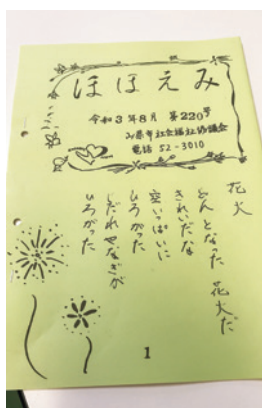 ほほえみ
令和3年8月 第220号
電話 52-3010
花火
どんとなった 花火だ
きれいだな
空いっぱいに
ひろがった
しだれやなぎが
ひろがった
1